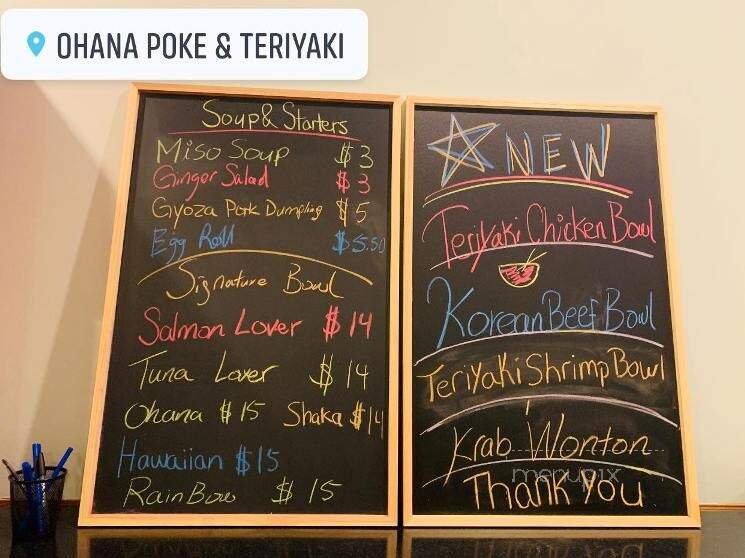 OHANA POKE & TERIYAKI
Soup & Starters
Miso Soup $3
Ginger Salad $3
Gyoza Pork Dumpling $5
Egg Roll $5.50
Signature Bowl
Salmon Lover $14
Tuna Lover $14
Ohana $15 Shaka $14
Hawaiian $15
RainBow $15
NEW
Teriyaki Chicken Bowl
Korean Beef Bowl
Teriyaki Shrimp Bowl
Krab Wonton
menupix
Thank You